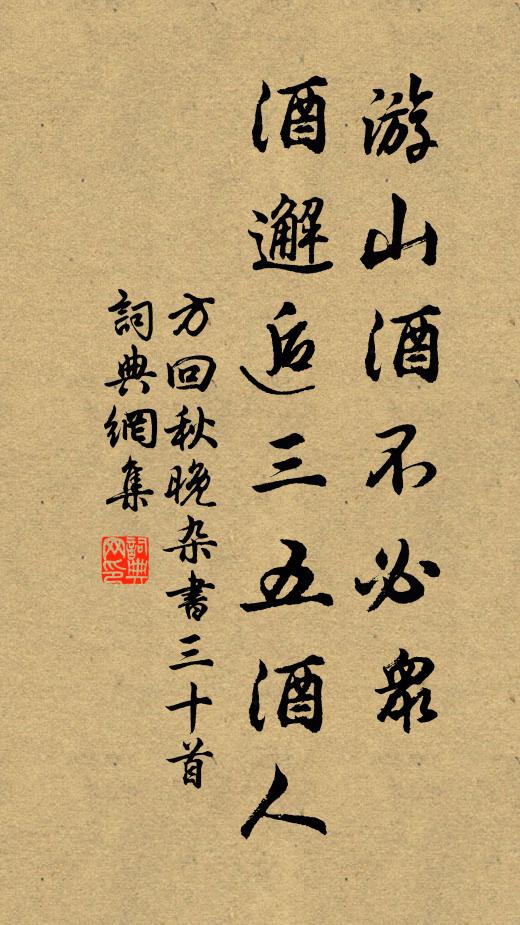 游山酒不必衆
酒邂逅三五酒人
方回秋晚杂書三十首
詞典網集
詞典网印